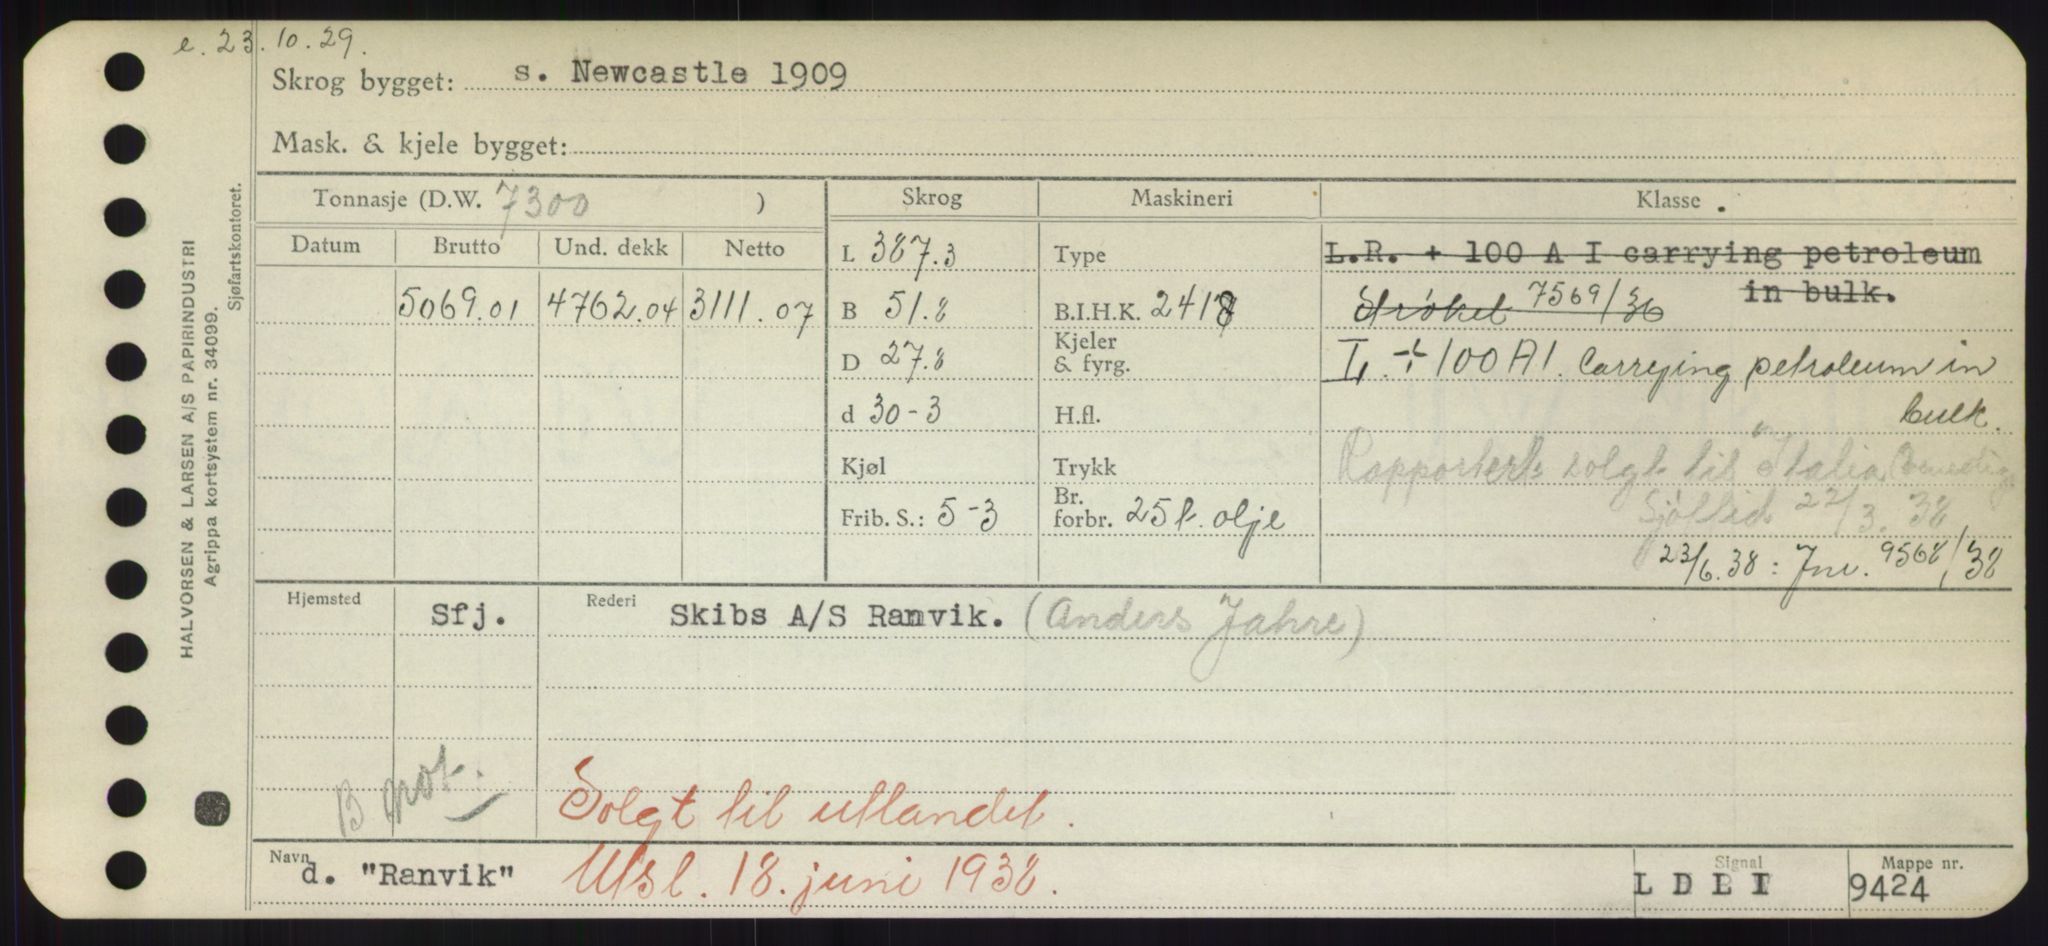 e. 23.10.29.
Skrog bygget: s. Newcastle 1909
Mask. & kjele bygget:
Tonnasje (D.W. 7300 )
Skrog
Maskineri
Klasse
Datum Brutto Und. dekk Netto
5069.01 4762.04 3111.07
L 387.3
B 51.8
D 27.8
d 30-3
Kjøl
Frib. S.: 5-3
Type
B.I.H.K. 2418
Kjeler
& fyrg.
H.fl.
Trykk
Br.
forbr. 25 t. olje
L.R. + 100 A I carrying petroleum
in bulk.
Strøket 7569/36
L. + 100 A1. Carrying petroleum in
bulk.
Rapportert solgt til Italia
Sjøftid 22/3.38
23/6.38: Jnv. 9568/38
Hjemsted Sfj.
Rederi Skibs A/S Ranvik. (Anders Jahre)
B not.
Solgt til utlandet.
Utsl. 18. juni 1938.
Navn d. "Ranvik"
Signal L D L I
Mappe nr. 9424
HALVORSEN & LARSEN A/S PAPIRINDUSTRI
Agrippa kortsystem nr. 34099.
Sjøfartskontoret.